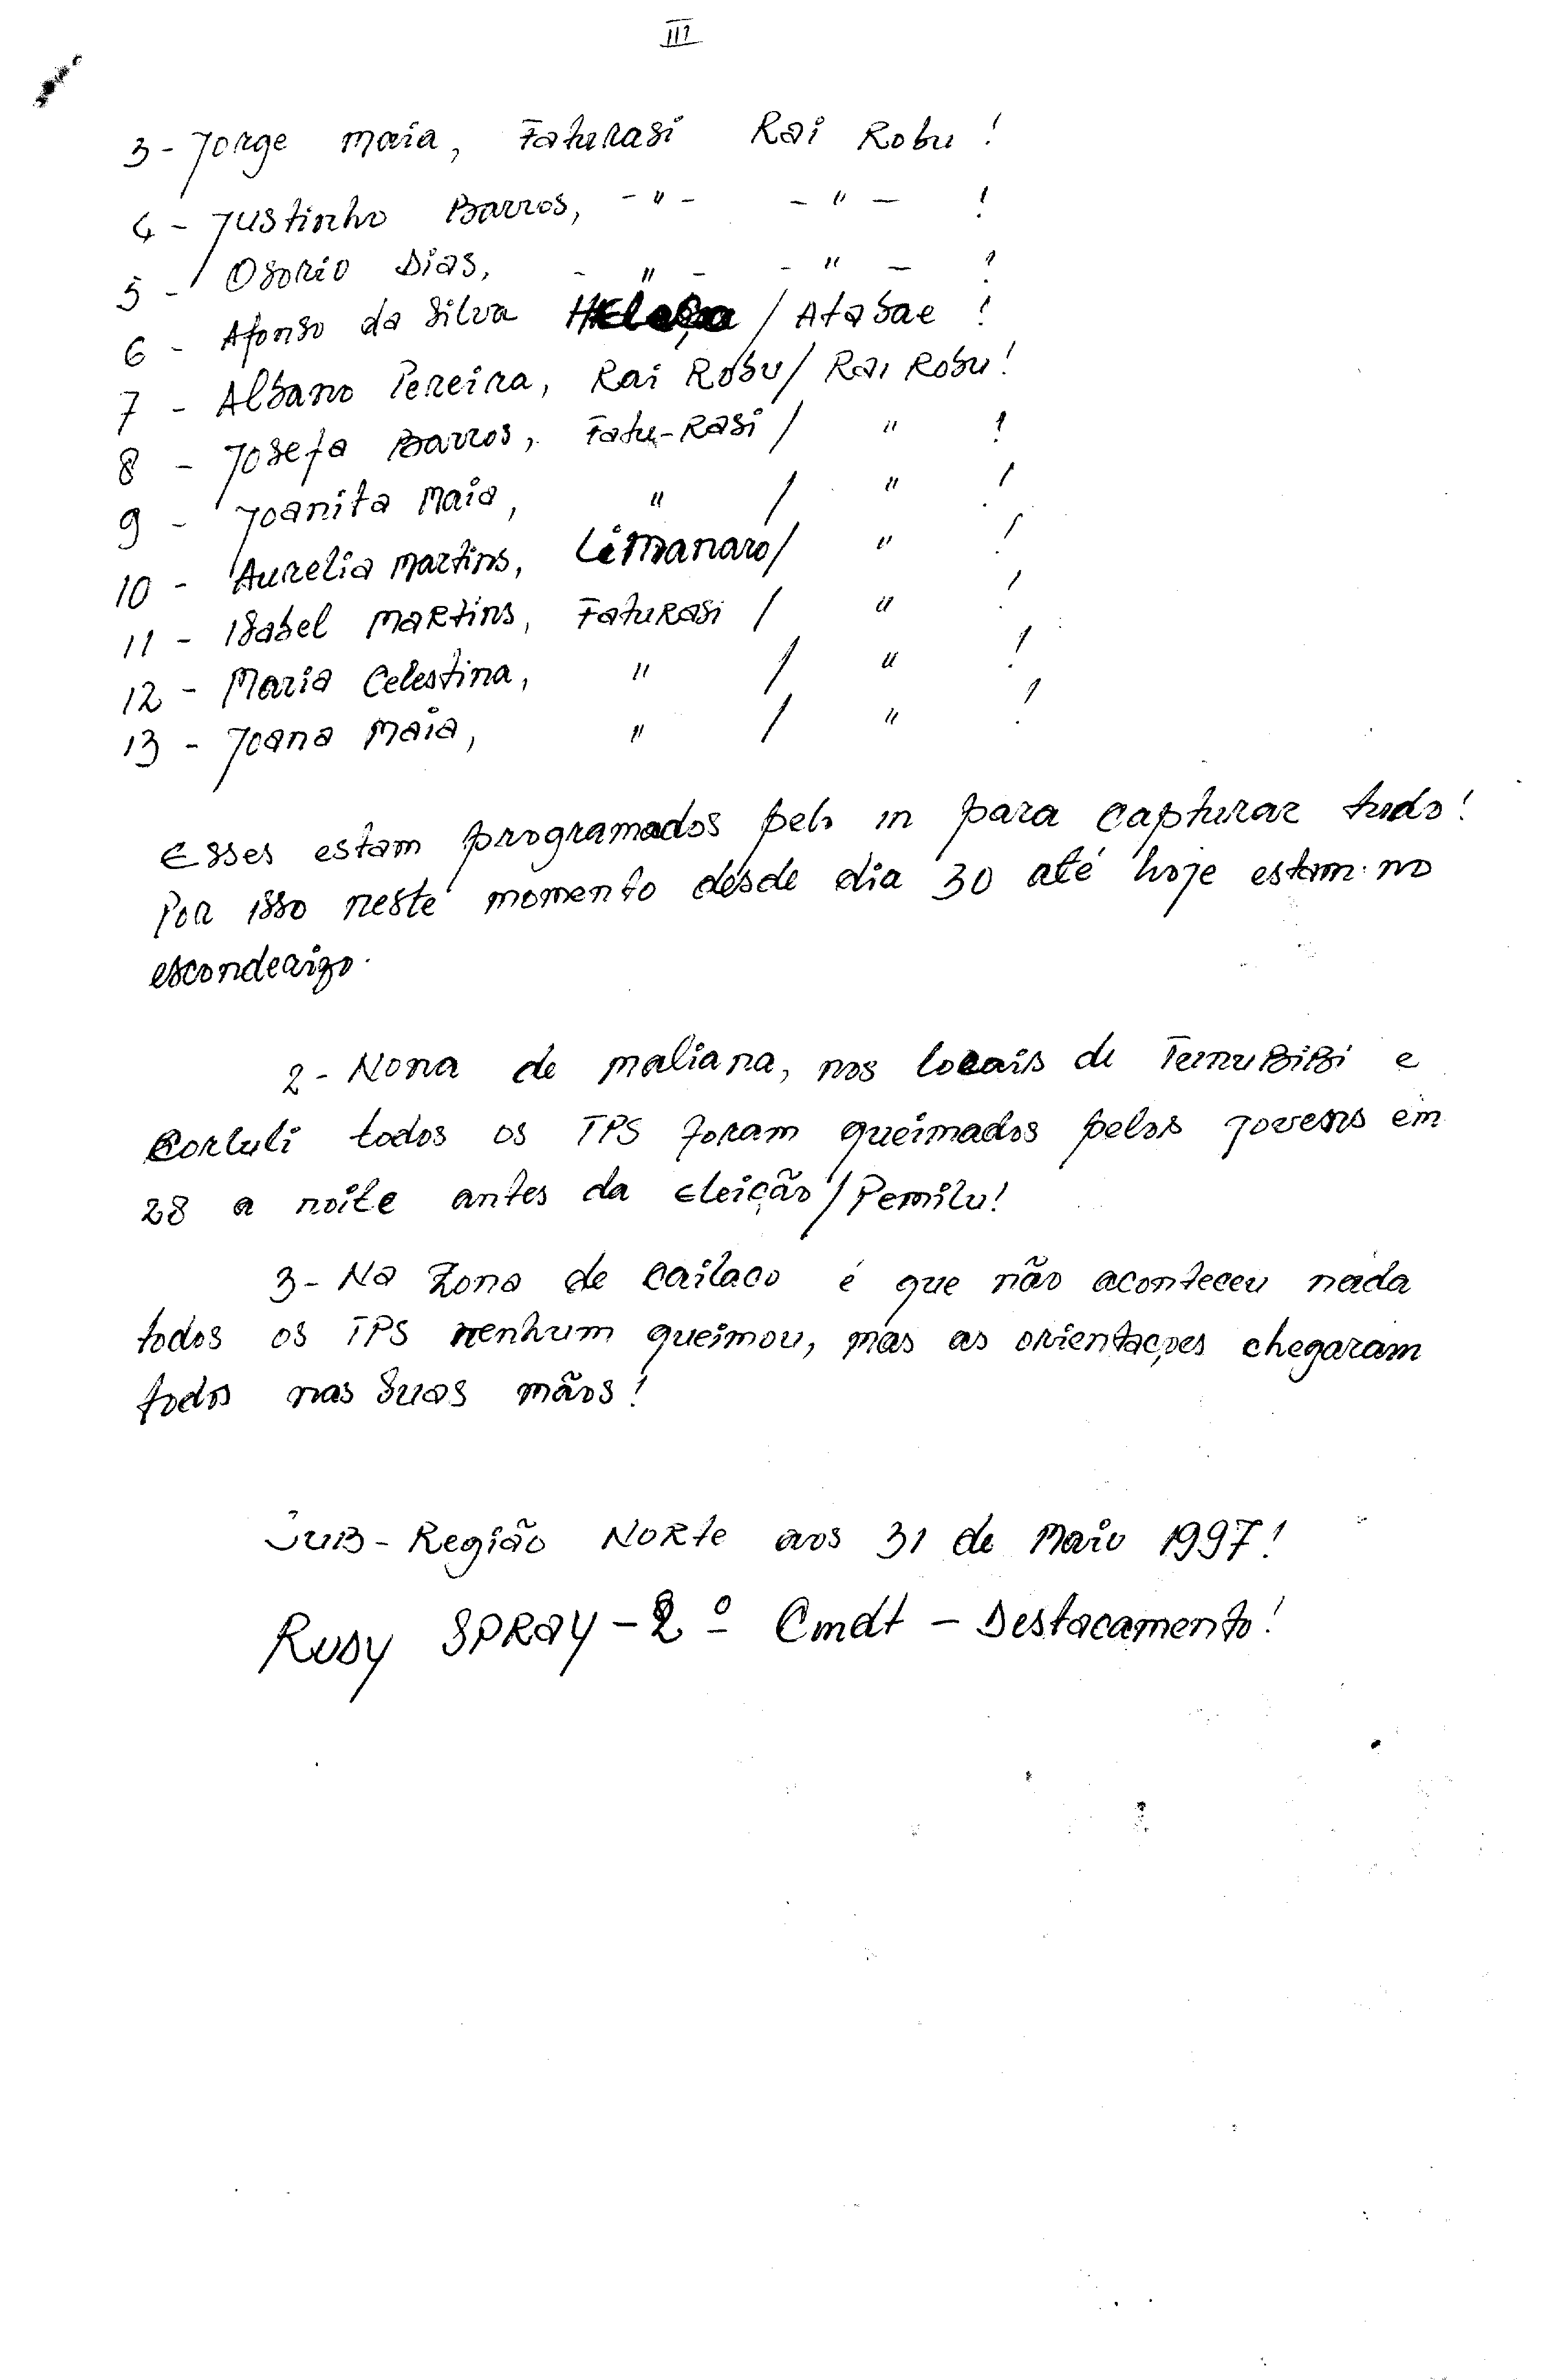 III
3 - Jorge Maia, Faturasi Rai Robu !
4 - Justinho Barros, - " - - " - !
5 - Osorio Dias, - " - - " - !
6 - Afonso da Silva / Atabae !
7 - Albano Pereira, Rai Robu / Rai Robu !
8 - Josefa Barros, Fatu-Rasi / " !
9 - Joanita Maia, " / " !
10 - Aurelia Martins, Limanaro / " !
11 - Isabel Martins, Faturasi / " !
12 - Maria Celestina, " / " !
13 - Joana Maia, " / " !
Esses estam programados pelo in para capturar tudo !
Por isso neste momento desde dia 30 até hoje estam no
esconderizo.
2 - Nona de Maliana, nos locais de TunuBiBi e
Corluli todos os TPS foram queimados pelos jovens em
28 a noite antes da Eleição / Pemilu !
3 - Na Zona de Cailaco é que não aconteceu nada
todos os TPS nenhum queimou, mas as orientaçoes chegaram
todos nas Suas mãos !
SUB - Região NORte aos 31 de Maio 1997 !
RUBY SPRAY - 2º Cmdt - Destacamento !